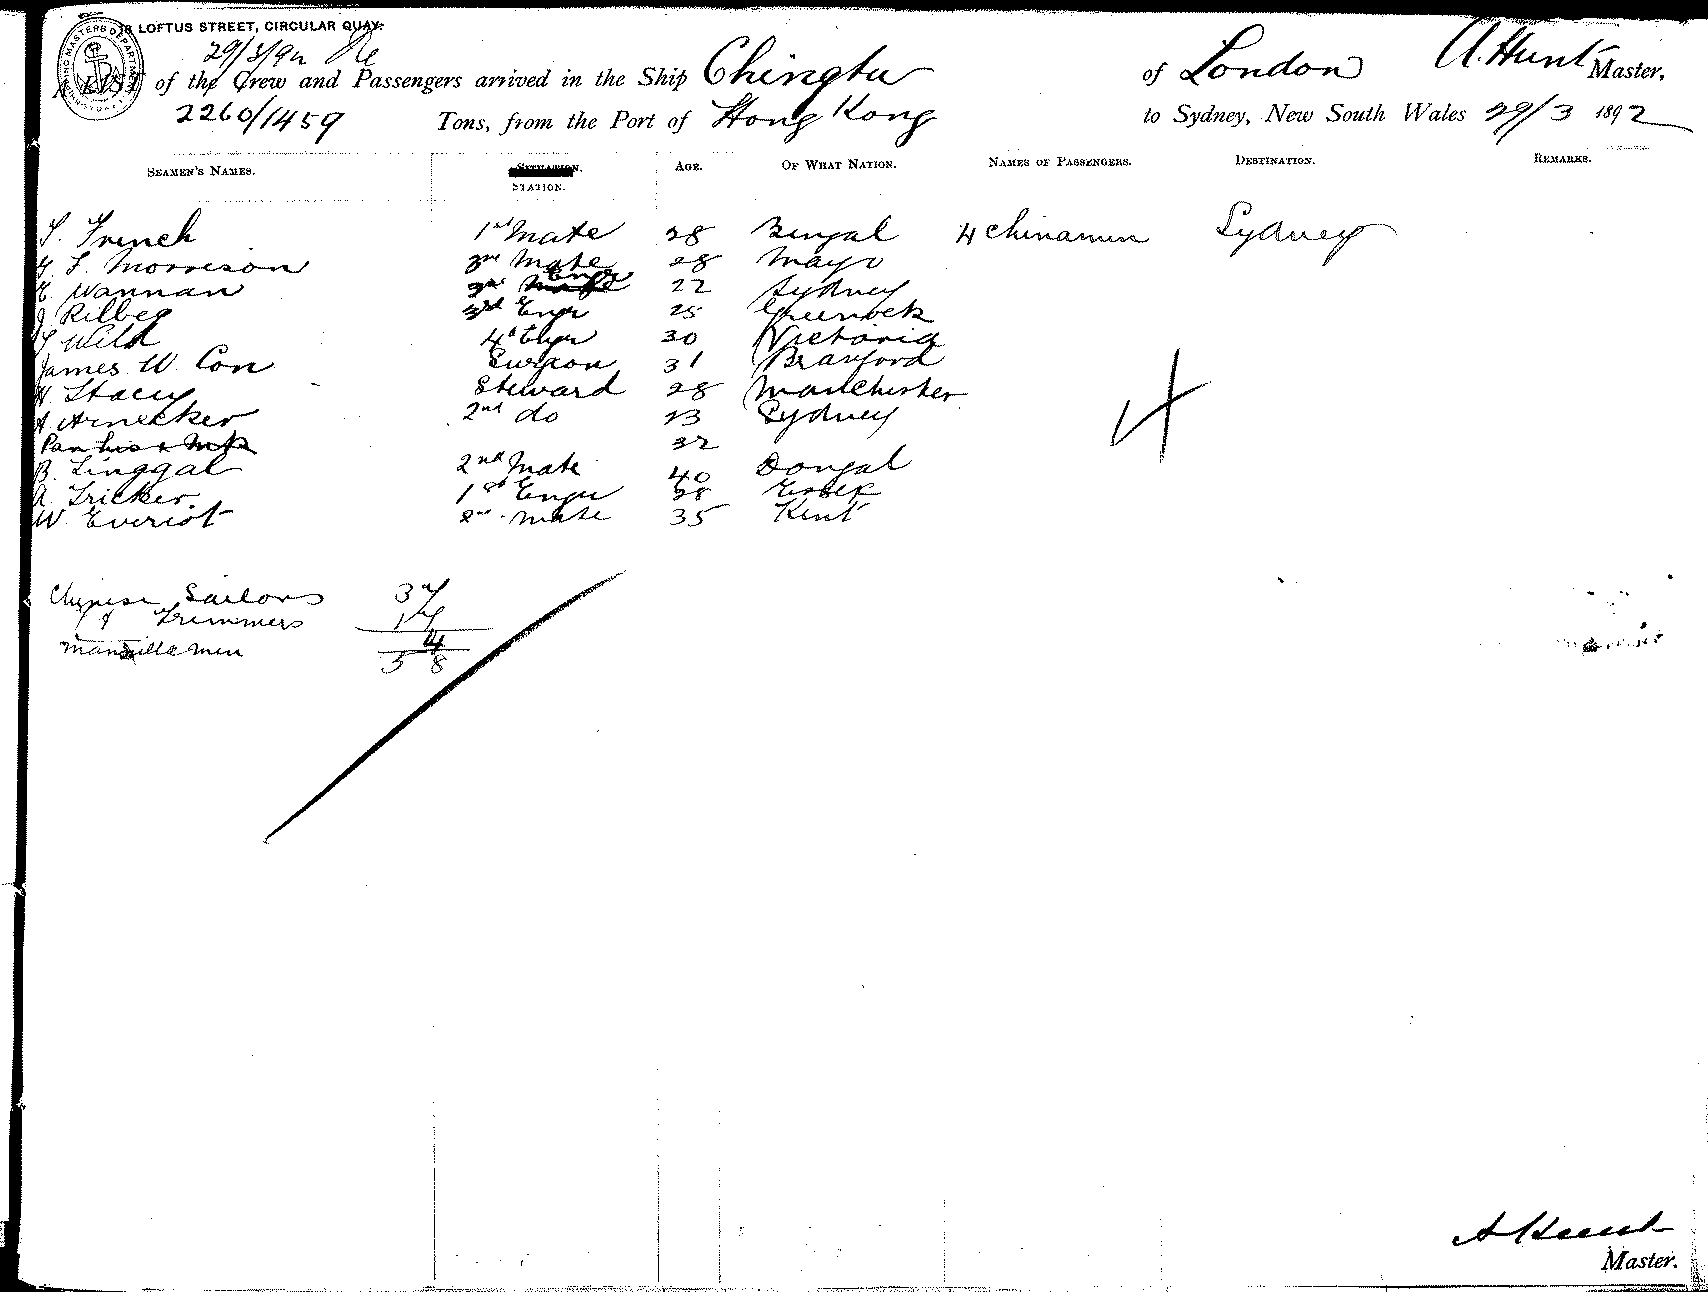 18 LOFTUS STREET, CIRCULAR QUAY.
29/3/92
A LIST of the Crew and Passengers arrived in the Ship Chingtu of London A. Hunt Master,
2260/1459 Tons, from the Port of Hong Kong to Sydney, New South Wales 29/3 1892
SEAMEN'S NAMES. STATION. AGE. OF WHAT NATION. NAMES OF PASSENGERS. DESTINATION. REMARKS.
French 1st Mate 28 Bengal 4 Chinamen Sydney
F. Morrison Mate 28 Mayo
Wannan Engr 22 Sydney
3rd Engr 25 Greenock
Wild 4th Engr 30 Victoria
James W. Con Surgeon 31 Bradford
H. Stacey Steward 28 Manchester
A Arnecker 2nd do 23 Sydney
32
B. Linggal 2nd Mate 40 Dongal
A. Tricker 1st Engr 28 Essex
W. Everiot 2nd mate 35 Kent
4
Chinese Sailors 37
& Trimmers 17
Manilla men 4
58
A Hunt
Master.